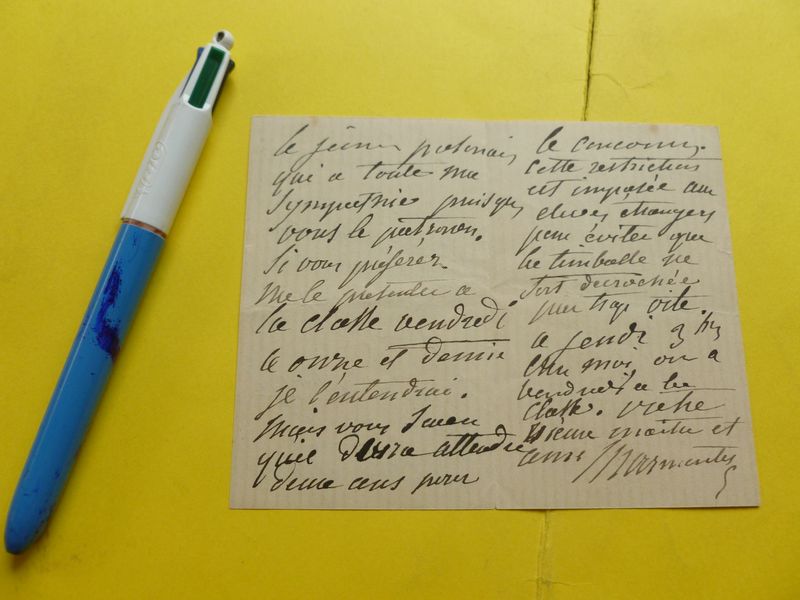 le jeune polonais
qui a toute ma
sympathie puisque
vous le patronez.
Si vous préférez
me le présenter a
la classe vendredi
a onze et demie
je l'entendrai.
mais vous savez
qu'il devra attendre
deux ans pour
le concours.
cette restriction
est imposée aux
élèves étrangers
pour éviter que
la timballe ne
soit décrochée
par trop vite.
a jeudi 3 h
chez moi, ou a
vendredi a la
classe. votre
vieux maître et
ami Marmontel